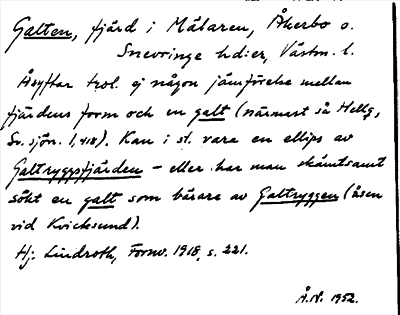 Galten, fjärd i Mälaren, Åkerbo o.
Snevringe hd:er, Västm. l.
Åsyftar trol. ej någon jämförelse mellan
fjärdens form och en galt (närmast så Hellq,
Sv. sjön. 1, 418). Kan i st. vara en ellips av
Galtryggsfjärden – eller har man skämtsamt
sökt en galt som bärare av Galtryggen (åsen
vid Kvicksund).
Hj. Lindroth, Fornv. 1918, s. 221.
Å.N. 1952.